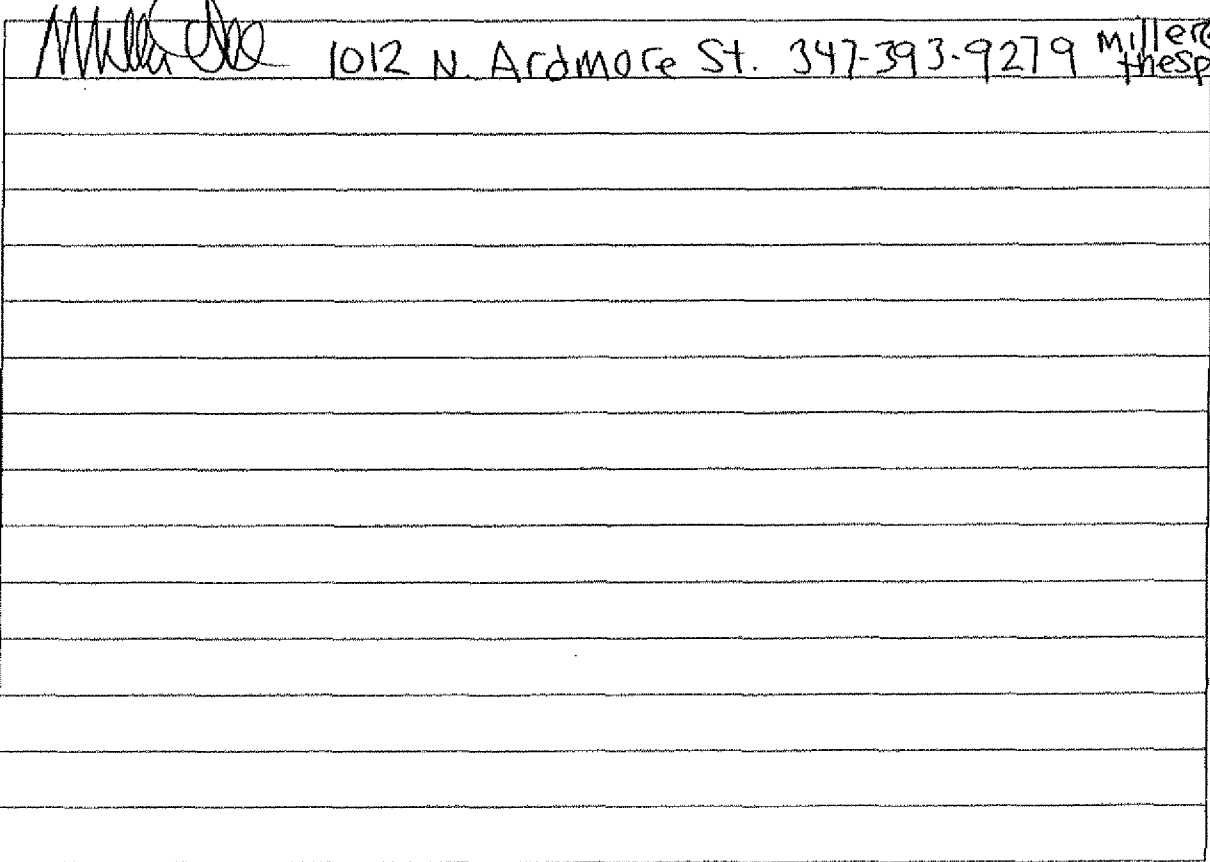 1012 N. Ardmore St. 347-393-9279 Miller
thesp